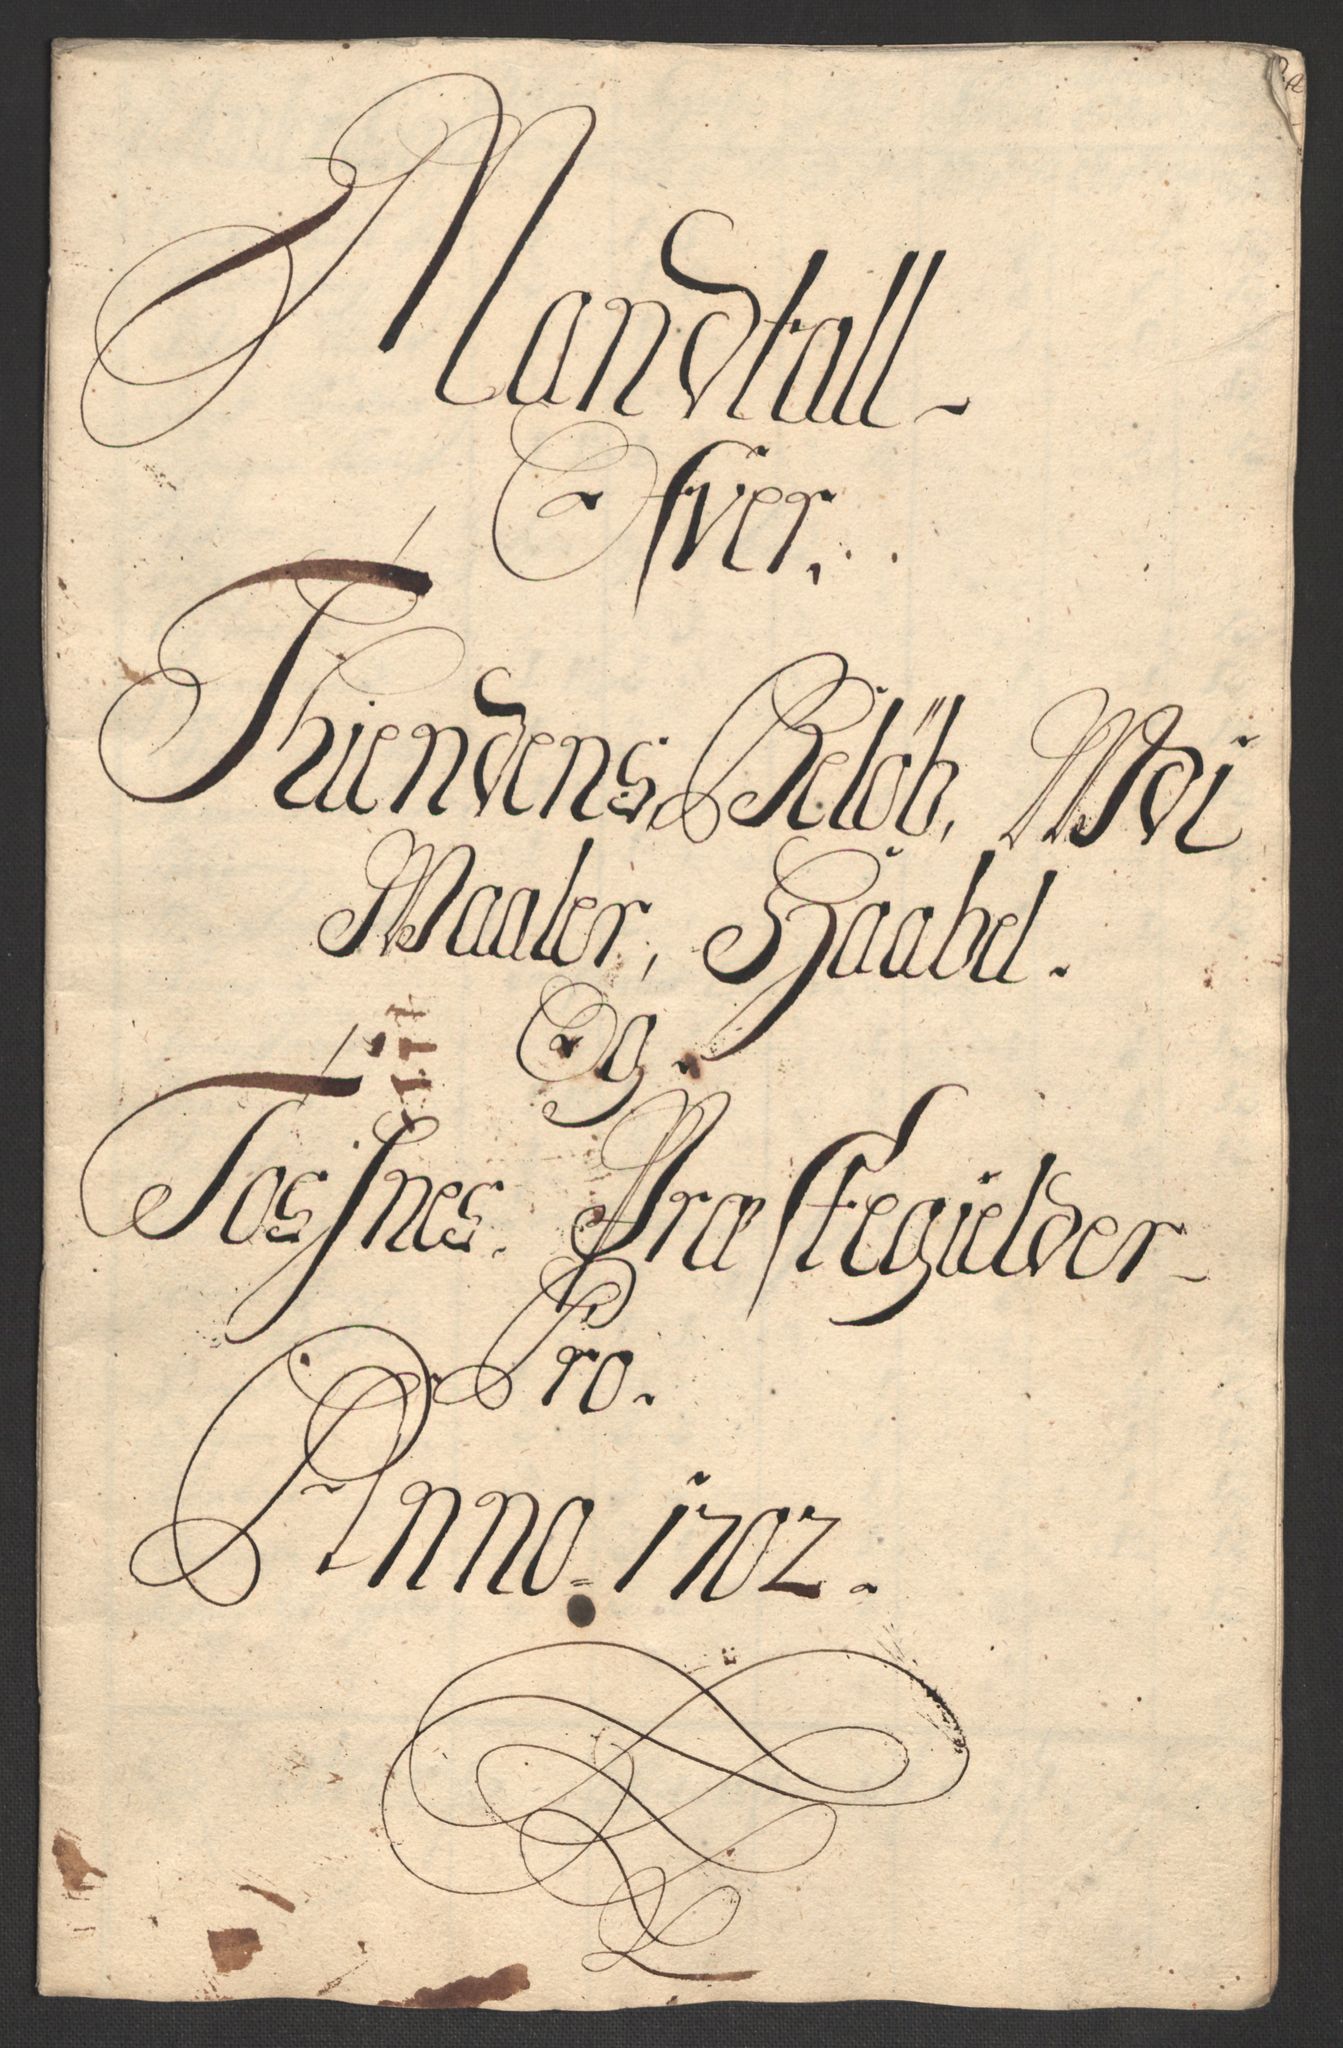 Mandtall
Ofver.
Thiendens Belöb, Udi
Maaler, Haabel.
Og.
Tossnes. Præstegielder
Pro.
Anno 1702.